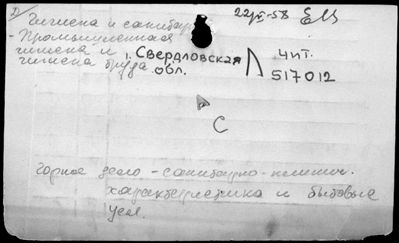 Гигиена и санитар.
22/XI-58 ЕМ
- Промышленная
гигиена и
гигиена труда
г. Свердловская
обл.
Чит.
517012
С
Горное дело - санитарно-клинич.
характеристика и бытовые
усл.